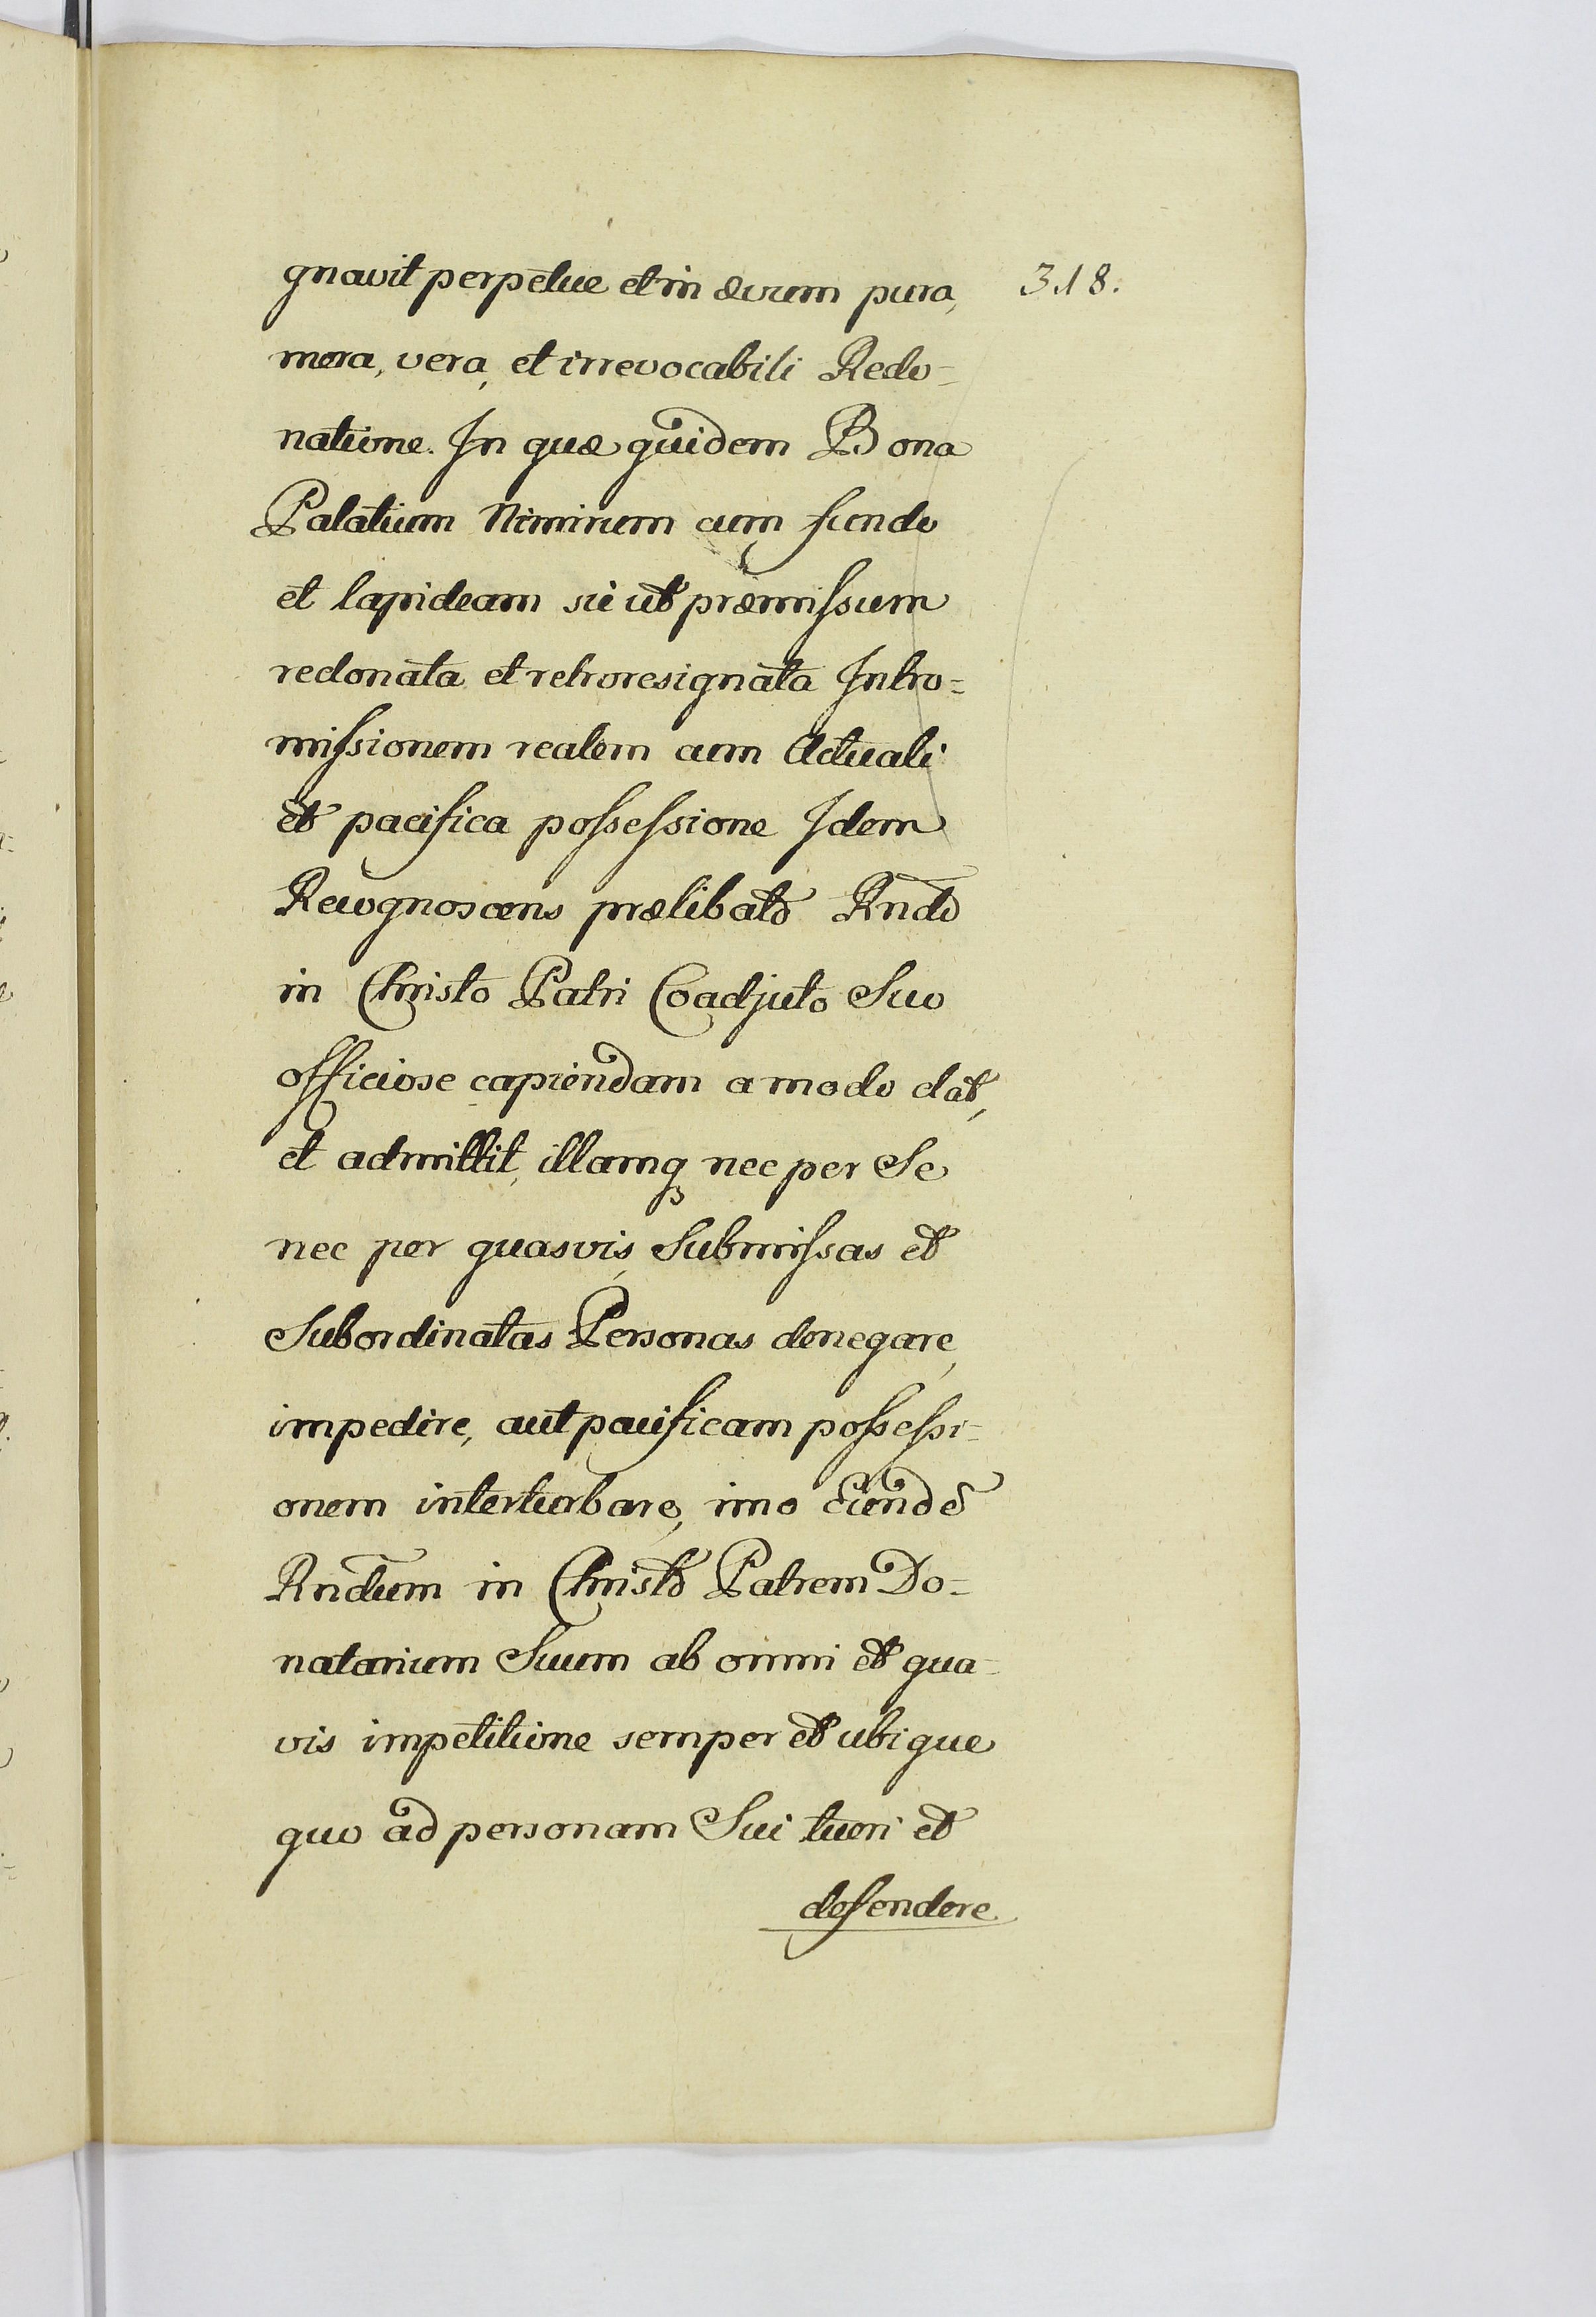 gnavit perpetue et in ævum pura, 318.
mera, vera, et irrevocabili Redo=
natione. In quæ quidem Bona
Palatium Nimirum cum fundo
et lapideam sic ut præmissum
redonata et retroresignata Intro=
missionem realem cum Actuali
et pacifica possessione Idem
Recognoscens prælibato Rndo
in Christo Patri Coadjuto Suo
officiose capiendam a modo dat,
et admittit, illamq nec per Se
nec per quasvis Submissas et
Subordinatas Personas denegare,
impedire, aut pacificam possessi=
onem interturbare, imo Eunde
Rndum in Christo Patrem Do=
natarium Suum ab omni et qua=
vis impetitione semper et ubique
quo ad personam Sui tueri et
defendere